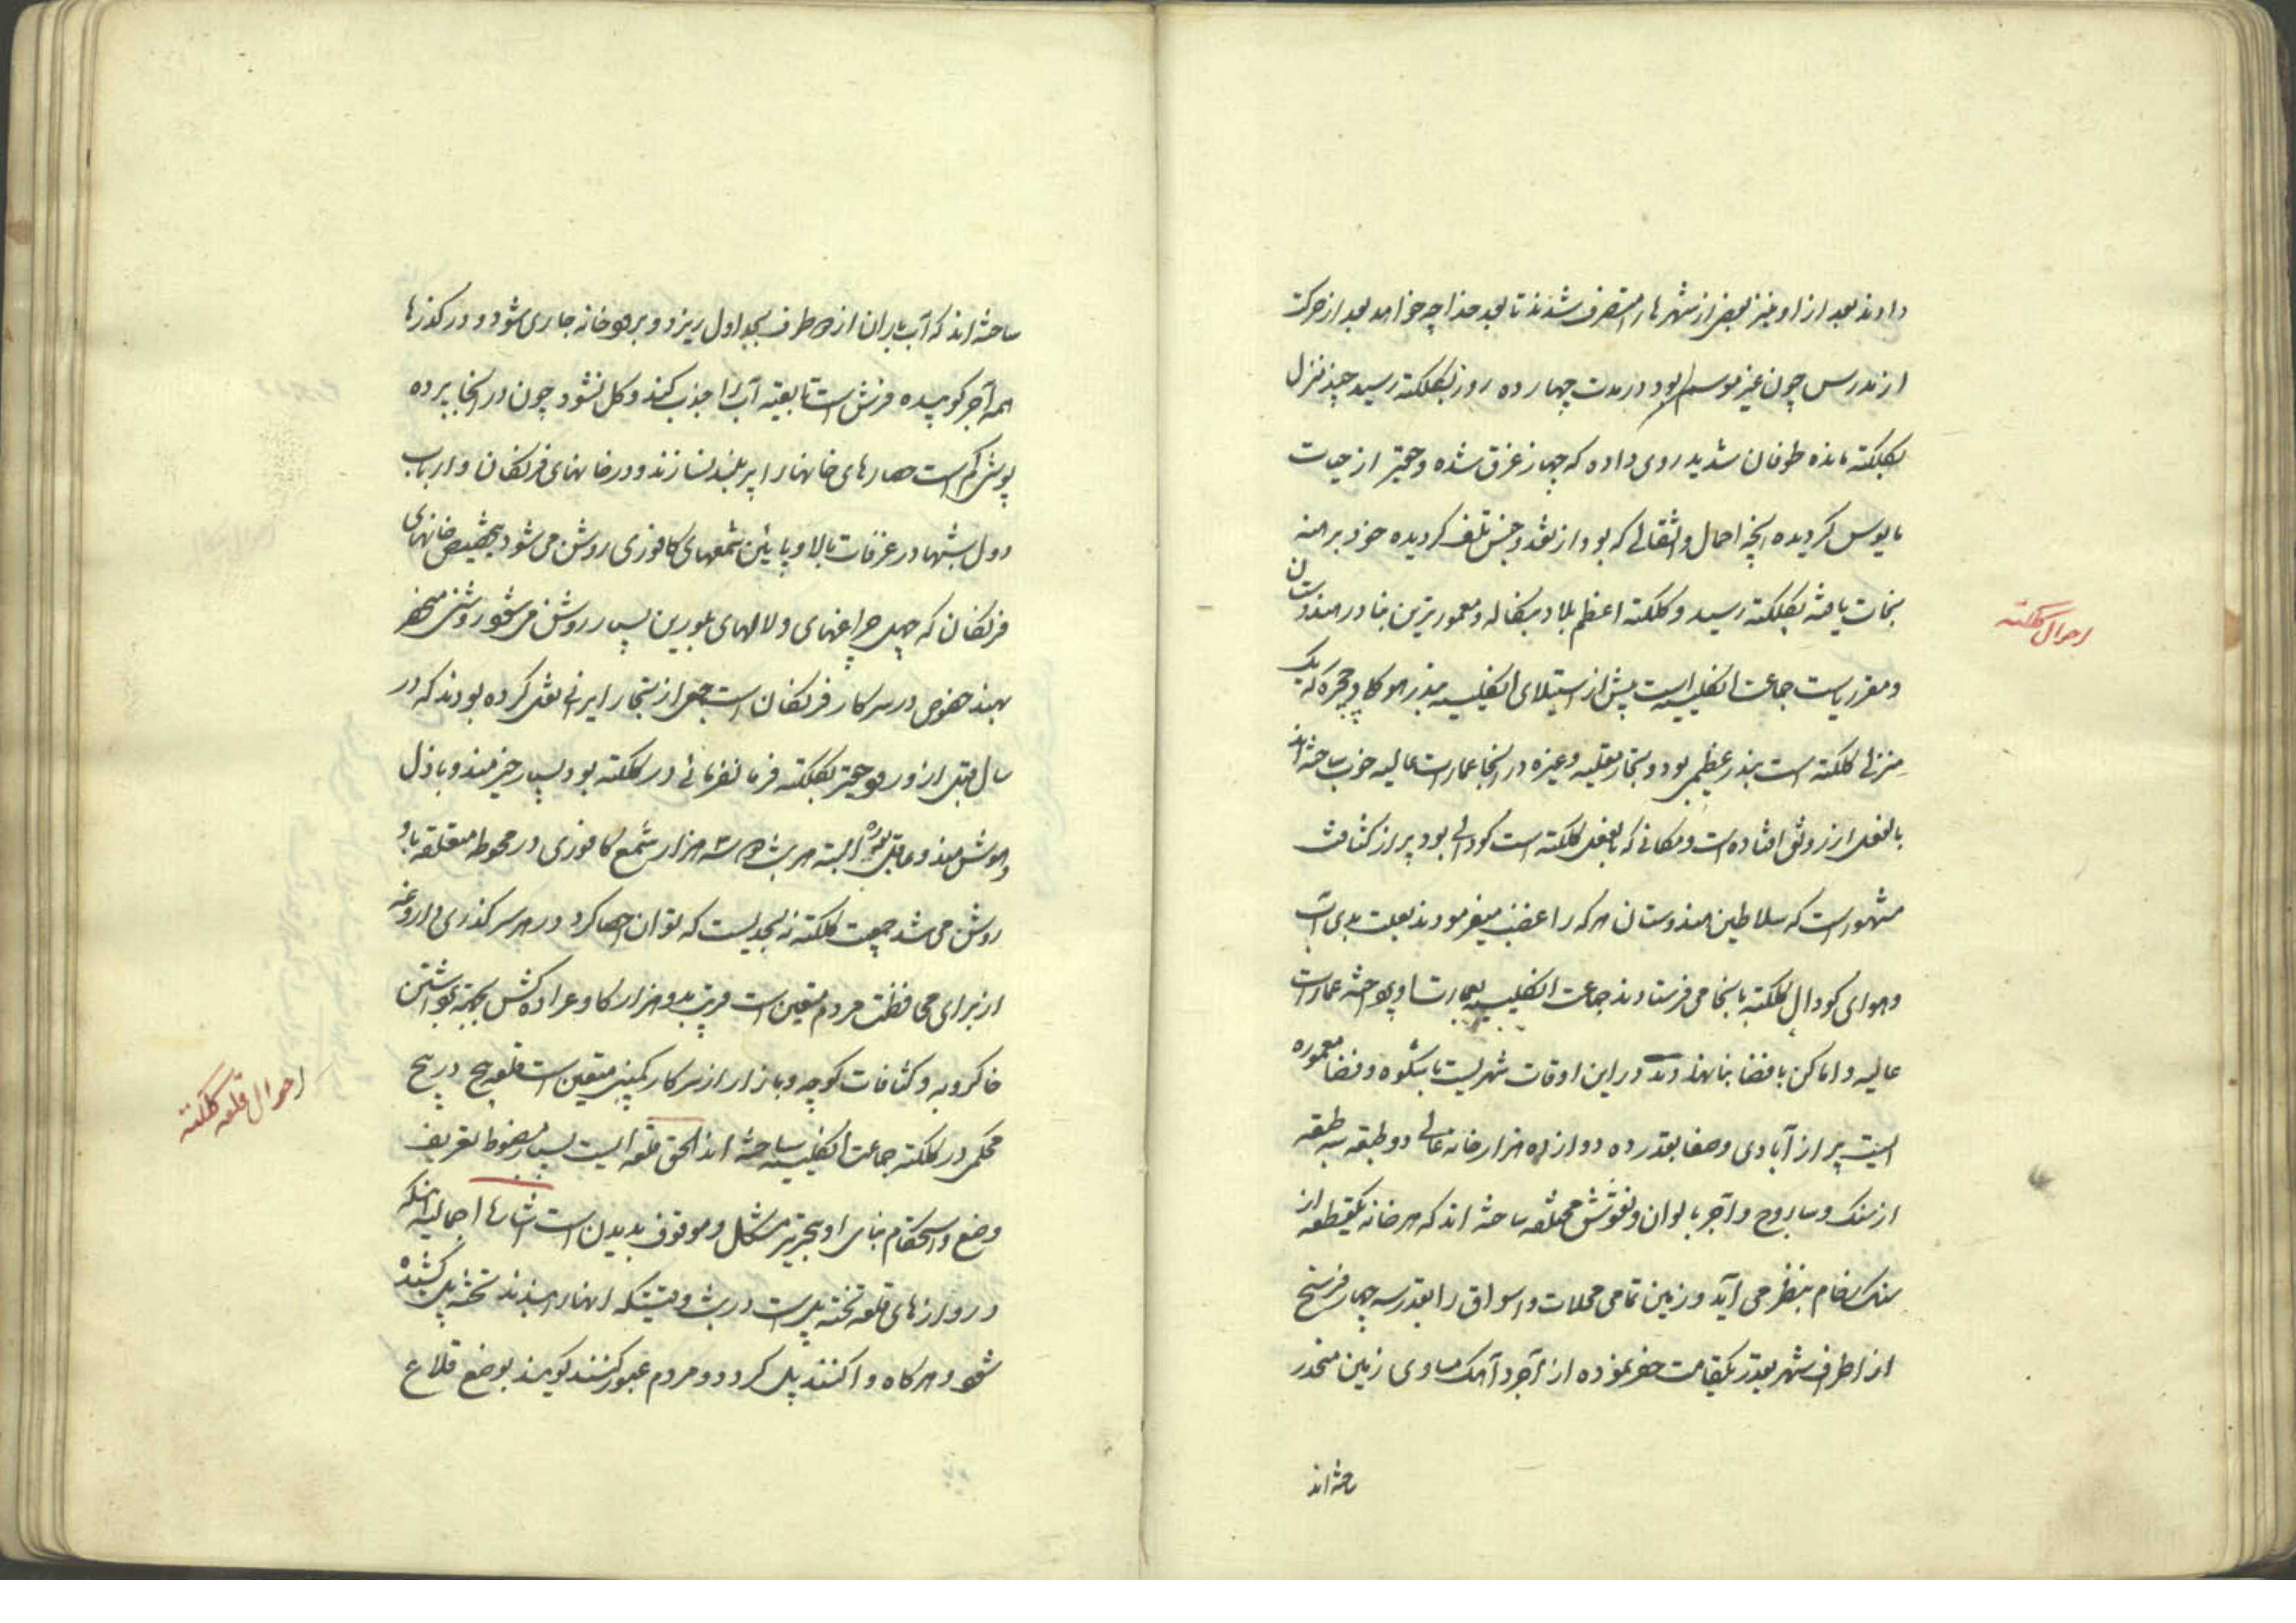 دادند بعد از او نیز بعضی از شهرها را متصرف شدند تا بعد خدا چه خواهد بعد از حرکت
از مدرس چون غیر موسم بود در مدت چهارده روز بکلکته رسید چند منزل
بکلکته مانده طوفان شدید روی داده که جهاز غرق شده و حقیر از حیات
مایوس گردیده آنچه احمال و اثقالی که بود از نقد و جنس تلف گردیده خود برهنه
نجات یافته بکلکته رسید و کلکته اعظم بلاد بنگاله و معمورترین بنادر هندوستان
احوال کلکته
و مقر ریاست جماعت انگلیسیه است پیش از استیلای انگلیسیه بندر هوکلی و چجره که یک
منزلی کلکته است بندر عظیمی بود و تجار مغلیه و غیره در آنجا عمارت عالیه خوب ساخته‌اند
بالفعل از رونق افتاده است و مکانی که بالفعل کلکته است کودالی بود پر از کثافت
مشهور است که سلاطین هندوستان هر که را غضب میفرمودند بعلت بدی آب
و هوای کودال کلکته بآنجا می‌فرستادند جماعت انگلیسیه بعمارت او پرداخته عمارات
عالیه و اماکن بافضا بنا نهادند در این اوقات شهریست باشکوه و فضا معموره
ایست پر از آبادی و صفا بقدر ده دوازده هزار خانه عالی دو طبقه سه طبقه
از سنک و ساروج و آجر بالوان و نقوش مختلفه ساخته اند که هر خانه یکقطعه از
سنک رخام بنظر می آید و زمین تمامی محلات و اسواق را بقدر سه چهار فرسخ
از اطراف شهر بقدر یکقامت حفر نموده از آجر و آهک مساوی زمین منحدر
ساخته اند
ساخته اند که آب باران از هر طرف بجداول ریزد و برودخانه جاری شود و در کذرها
همه آجر کوبیده فرش است تا بقیه آب را جذب کند و کل نشود چون در آنجا پرده
پوشی کم است حصارهای خانها را پر بلند نسازند و در خانهای فرنکان و ارباب
دول شبها در غرفات بالا و پایین شمعهای کافوری روشن می شود بتخصیص خانهای
فرنکان که چهل چراغهای و لالهای بلورین بسیار روشن می شود روشنی منحصر
بهند خصوص در سرکار فرنکان است جمعی از تجار ایرانی نقل کرده بودند که در
سال قبل از ورود حقیر بکلکته فرمانفرمائی در کلکته بود بسیار خیرمند و باذل
و هوشمند و عاقل بوده البته هر شب دو سه هزار شمع کافوری در محوطه متعلقه باو
روشن می شد جمعیت کلکته نه بحدیست که توان احصا کرد در هر سر کذری داروغه
از برای محافظت مردم متعین است قریب بدو هزار کاو عراده کش بجهة برداشتن
خاکروبه و کثافات کوچه و بازار از سرکار کمپنی متعین است قلعه پیچ در پیچ
احوال قلعه کلکته
محکمی در کلکته جماعت انگلیسیه ساخته اند الحق قلعه ایست بسیار مضبوط تعریف
وضع و استحکام بنای او بتحریر مشکل و موقوف بدیدن است اشارها اجمالیه آنکه
دروازهای قلعه تخته پل است در شب وقتیکه آنها را ببندند تخته پل کشیده
شود و هر کاه وا کنند پل کردد و مردم عبور کنند کویند بوضع قلاع